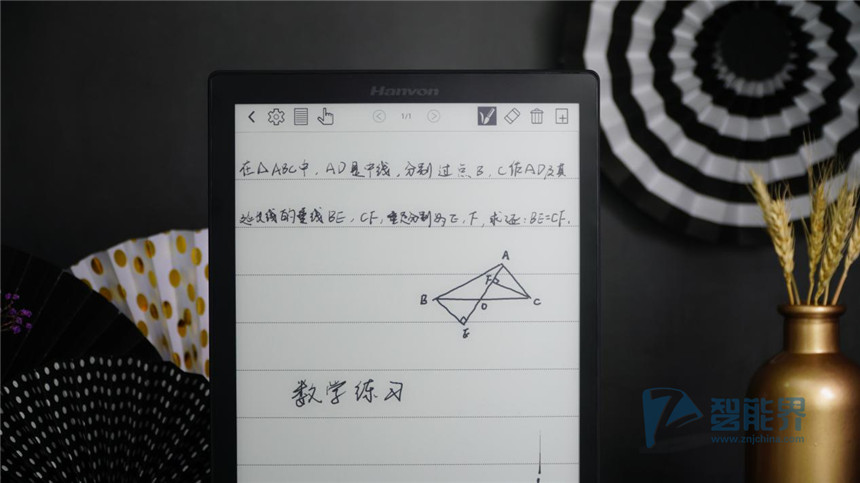 Hanvon
1/1
在△ABC中，AD是中线，分别过点B，C作AD及其
延长线的垂线BE，CF，垂足分别为E，F，求证：BE=CF。
A
F
B
D
C
E
数学练习
智能界
www.znjchina.com